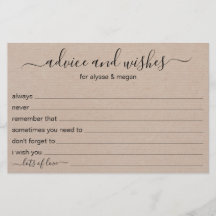 advice and wishes
for alysse & megan
always
never
remember that
sometimes you need to
don't forget to
i wish you
lots of love